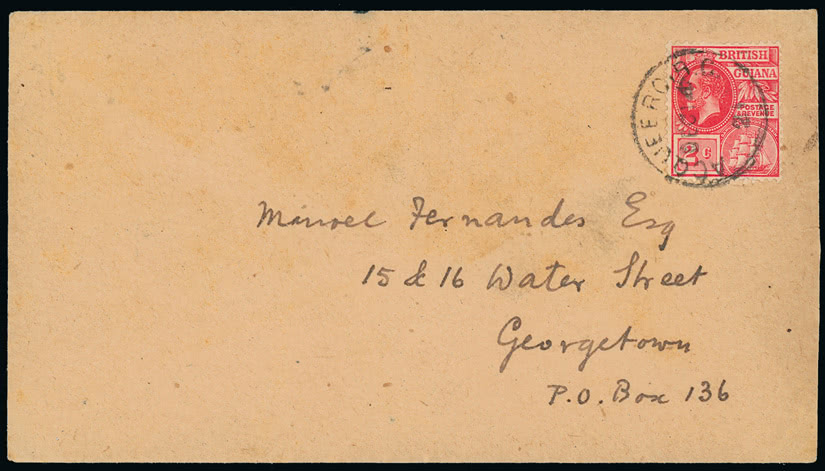 BRITISH
GUIANA
POSTAGE
& REVENUE
2 C
Manoel Fernandes Esq
15 & 16 Water Street
Georgetown
P.O. Box 136